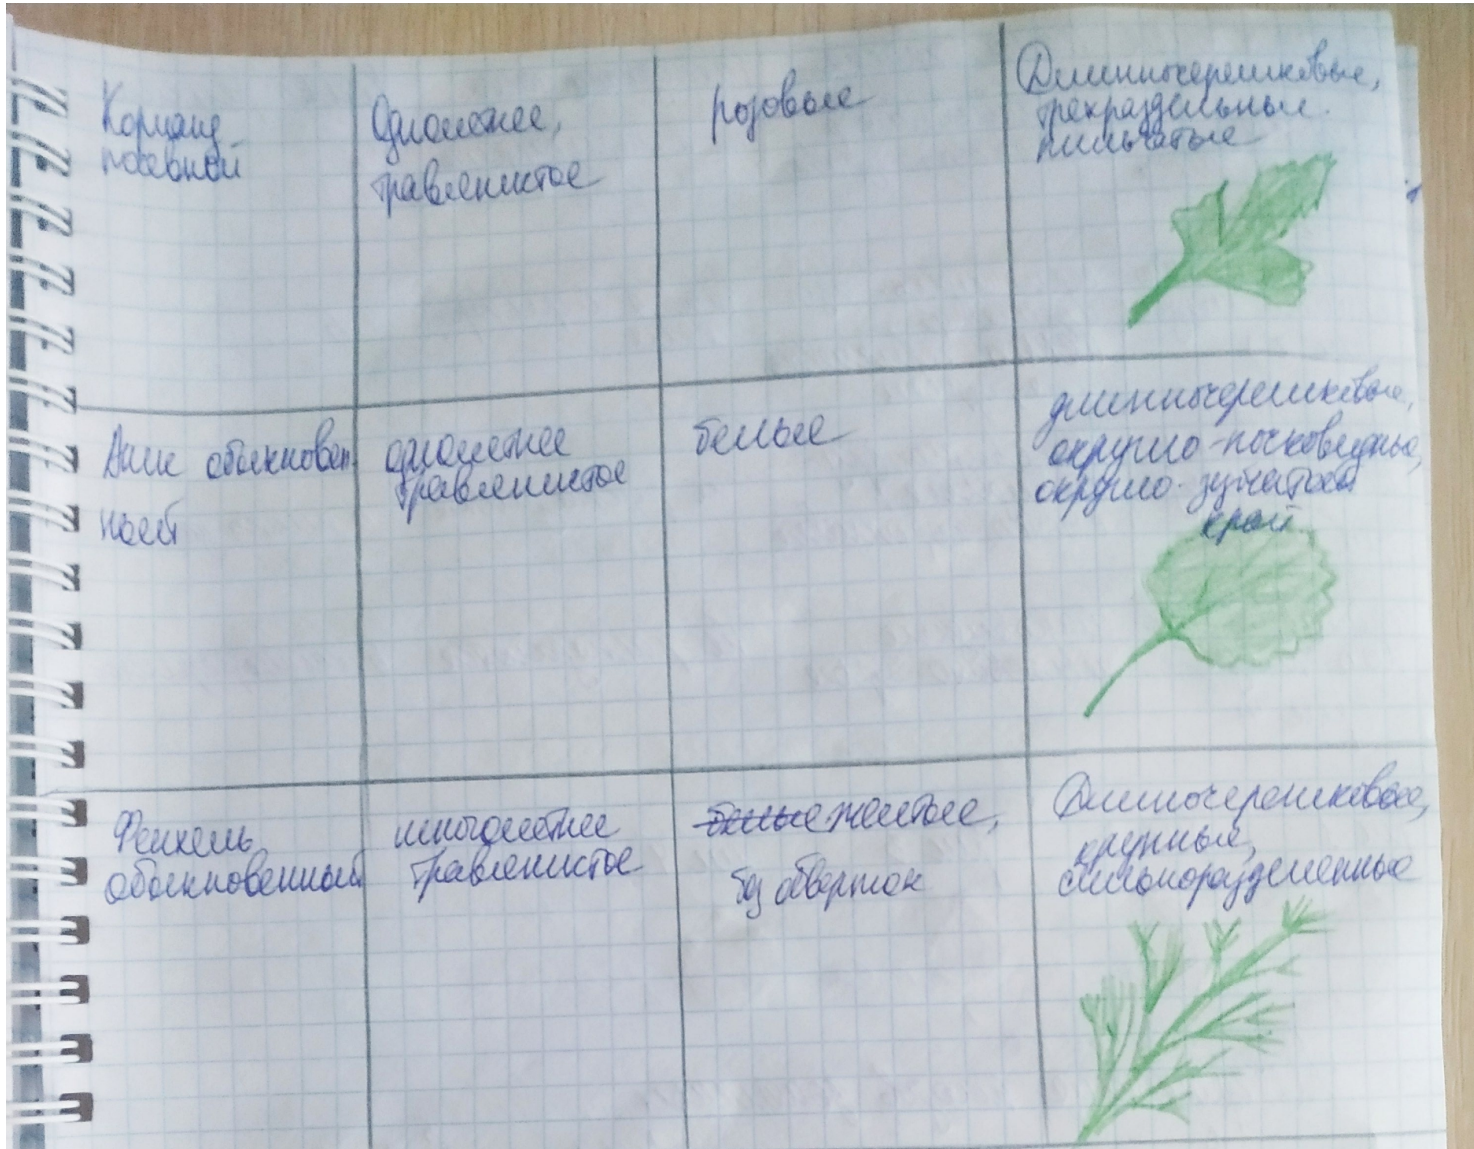 Кориандр
посевной
Однолетнее,
травянистое
розовые
Длинночерешковые,
трехраздельные.
пильчатые
Анис обыкновен
ный
однолетнее
травянистое
белые
длинночерешковые,
округло-почковидные,
округло-зубчатый
край.
Фенхель
обыкновенный
многолетнее
травянистое
белые желтые,
без обверток
Длинночерешковые,
крупные,
сильноразделенные